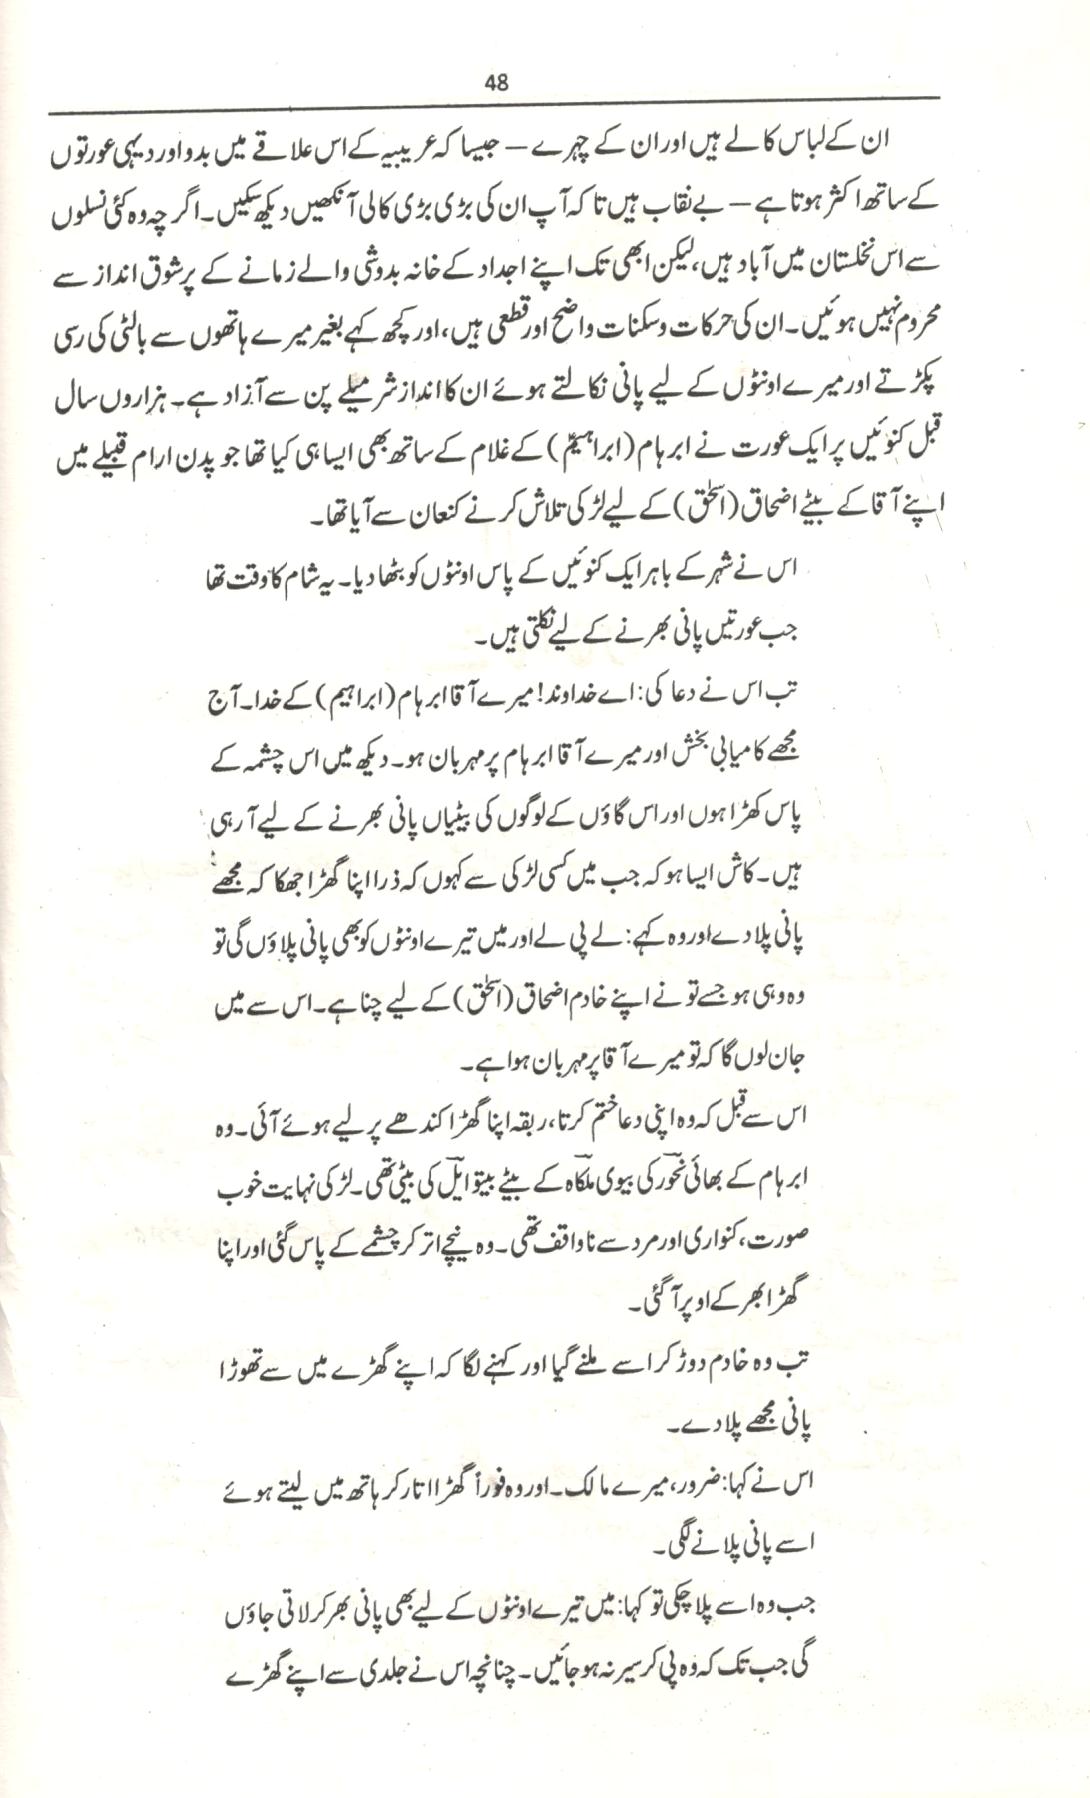 48
ان کے لباس کالے ہیں اور ان کے چہرے – جیسا کہ عریبیہ کے اس علاقے میں بدو اور دیہی عورتوں
کے ساتھ اکثر ہوتا ہے – بے نقاب ہیں تاکہ آپ ان کی بڑی بڑی کالی آنکھیں دیکھ سکیں۔ اگرچہ وہ کئی نسلوں
سے اس نخلستان میں آباد ہیں، لیکن ابھی تک اپنے اجداد کے خانہ بدوشی والے زمانے کے پرشوق انداز سے
محروم نہیں ہوئیں۔ ان کی حرکات و سکنات واضح اور قطعی ہیں، اور کچھ کہے بغیر میرے ہاتھوں سے بالٹی کی رسی
پکڑتے اور میرے اونٹوں کے لیے پانی نکالتے ہوئے ان کا انداز شرمیلے پن سے آزاد ہے۔ ہزاروں سال
قبل کنوئیں پر ایک عورت نے ابرہام (ابراہیمؑ) کے غلام کے ساتھ بھی ایسا ہی کیا تھا جو پدن ارام قبیلے میں
اپنے آقا کے بیٹے اضحاق (اسحٰق) کے لیے لڑکی تلاش کرنے کنعان سے آیا تھا۔
اس نے شہر کے باہر ایک کنوئیں کے پاس اونٹوں کو بٹھا دیا۔ یہ شام کا وقت تھا
جب عورتیں پانی بھرنے کے لیے نکلتی ہیں۔
تب اس نے دعا کی: اے خداوند! میرے آقا ابرہام (ابراہیم) کے خدا۔ آج
مجھے کامیابی بخش اور میرے آقا ابرہام پر مہربان ہو۔ دیکھ میں اس چشمہ کے
پاس کھڑا ہوں اور اس گاؤں کے لوگوں کی بیٹیاں پانی بھرنے کے لیے آ رہی
ہیں۔ کاش ایسا ہو کہ جب میں کسی لڑکی سے کہوں کہ ذرا اپنا گھڑا جھکا کہ مجھے
پانی پلا دے اور وہ کہے: لے پی لے اور میں تیرے اونٹوں کو بھی پانی پلاؤں گی تو
وہ وہی ہو جسے تو نے اپنے خادم اضحاق (اسحٰق) کے لیے چنا ہے۔ اس سے میں
جان لوں گا کہ تو میرے آقا پر مہربان ہوا ہے۔
اس سے قبل کہ وہ اپنی دعا ختم کرتا، ربقہ اپنا گھڑا کندھے پر لیے ہوئے آئی۔ وہ
ابرہام کے بھائی نحور کی بیوی ملکاہ کے بیٹے بیتوایل کی بیٹی تھی۔ لڑکی نہایت خوب
صورت، کنواری اور مرد سے ناواقف تھی۔ وہ نیچے اتر کر چشمے کے پاس گئی اور اپنا
گھڑا بھر کے اوپر آ گئی۔
تب وہ خادم دوڑ کر اسے ملنے گیا اور کہنے لگا کہ اپنے گھڑے میں سے تھوڑا
پانی مجھے پلا دے۔
اس نے کہا: ضرور، میرے مالک۔ اور وہ فوراً گھڑا اتار کر ہاتھ میں لیتے ہوئے
اسے پانی پلانے لگی۔
جب وہ اسے پلا چکی تو کہا: میں تیرے اونٹوں کے لیے بھی پانی بھر کر لاتی جاؤں
گی جب تک کہ وہ پی کر سیر نہ ہو جائیں۔ چنانچہ اس نے جلدی سے اپنے گھڑے